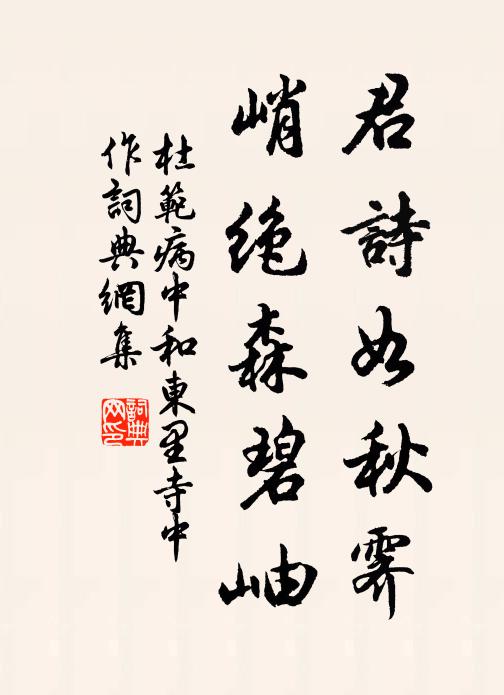 君詩如秋霽
峭绝森碧岫
杜範病中和東里寺中
作詞典網集
詞典
网印